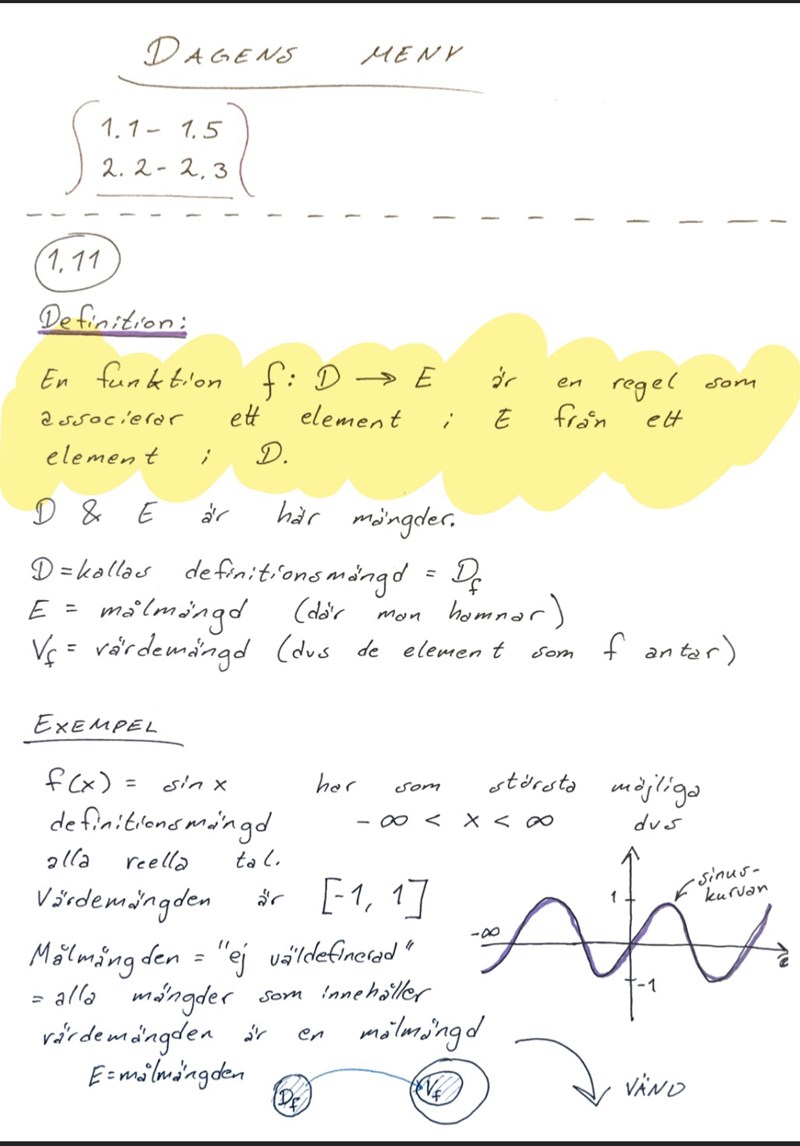 DAGENS MENY
1.1 - 1.5
2.2 - 2.3
1.11
Definition:
En funktion f: D → E är en regel som
associerar ett element i E från ett
element i D.
D & E är här mängder.
D = kallas definitionsmängd = D_f
E = målmängd (där man hamnar)
V_f = värdemängd (dvs de element som f antar)
EXEMPEL
f(x) = sin x har som största möjliga
definitionsmängd -∞ < x < ∞ dvs
alla reella tal.
Värdemängden är [-1, 1]
1
sinus-
kurvan
-∞
-1
Målmängden = "ej väldefinerad"
= alla mängder som innehåller
värdemängden är en målmängd
E = målmängden
D_f
V_f
VÄND